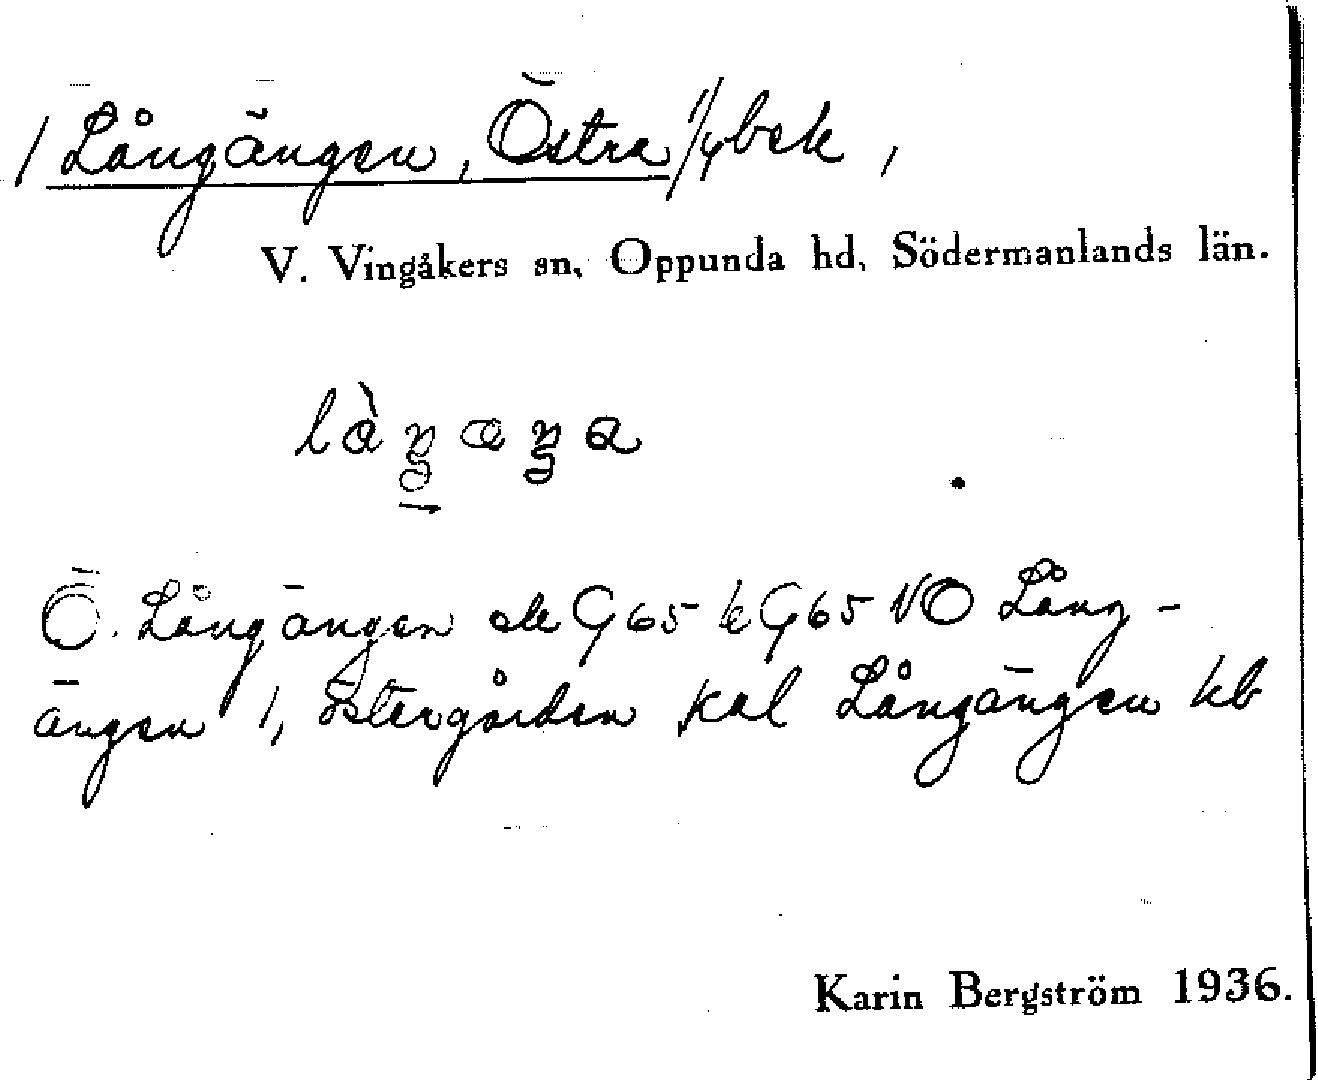 / Långängen, Östra 1/4 bek,
V. Vingåkers sn, Oppunda hd, Södermanlands län.
Ö. Långängen G65 G65 NO Lång-
ängen 1, Östergården kal Långängen kb
Karin Bergström 1936.